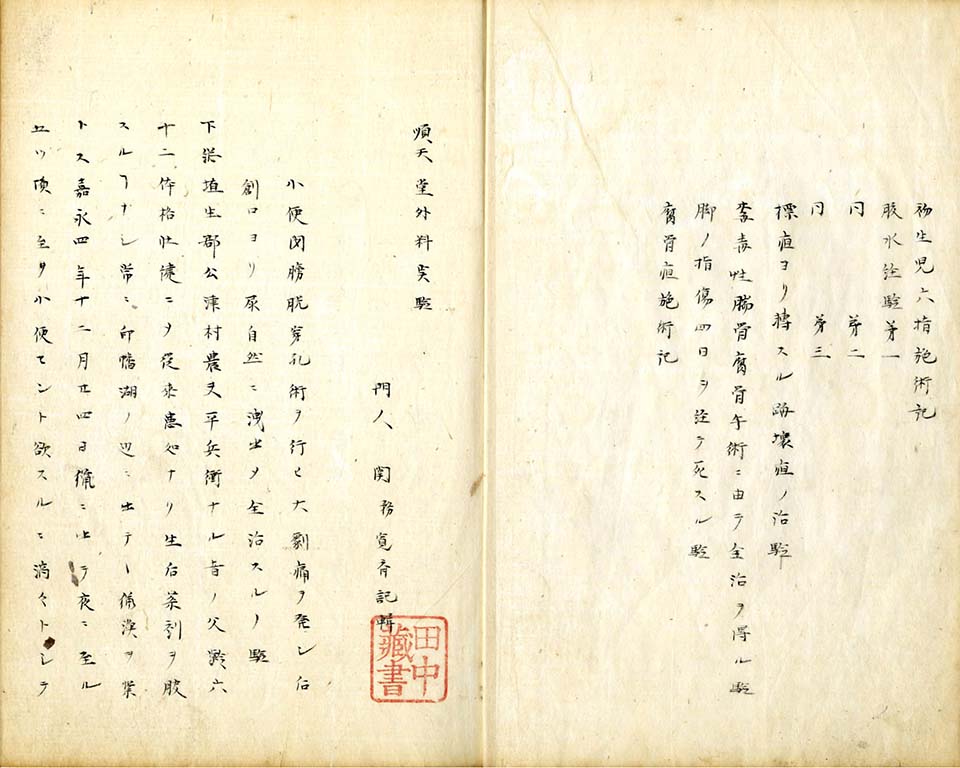 初生児六指施術記
胶水注験第一
同 第二
同 第三
標疽ヨリ轉スル 壊疽ノ治験
毒性腨骨腐骨 術ニ由テ全治ヲ得ル験
脚ノ指傷四日ヲ 死スル験
腐骨疽施術記
順天堂外科実験
門人 関 寛斉記輯
小便閉膀胱穿孔術ヲ行ヒ大劇痛ヲ発シ后
創口ヨリ尿自然ニ洩出〆全治スルノ験
下総埴生郡公津村農夫平兵衛ナル者ノ父齢六
十二体格壮健ニ〆従来患如ナリ生后茶剤ヲ服
スルヿナシ常ニ印幡湖ノ辺ニ出テ 漁ヲ業
トス嘉永四年十二月廿四日 ニ出テ夜ニ至ル
五ツ頃ニ至リ小便セント欲スルニ滴々トシテ
田中藏書